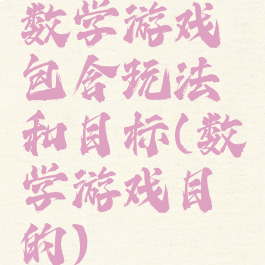 数学游戏
包含玩法
和目标(数
学游戏目
的)